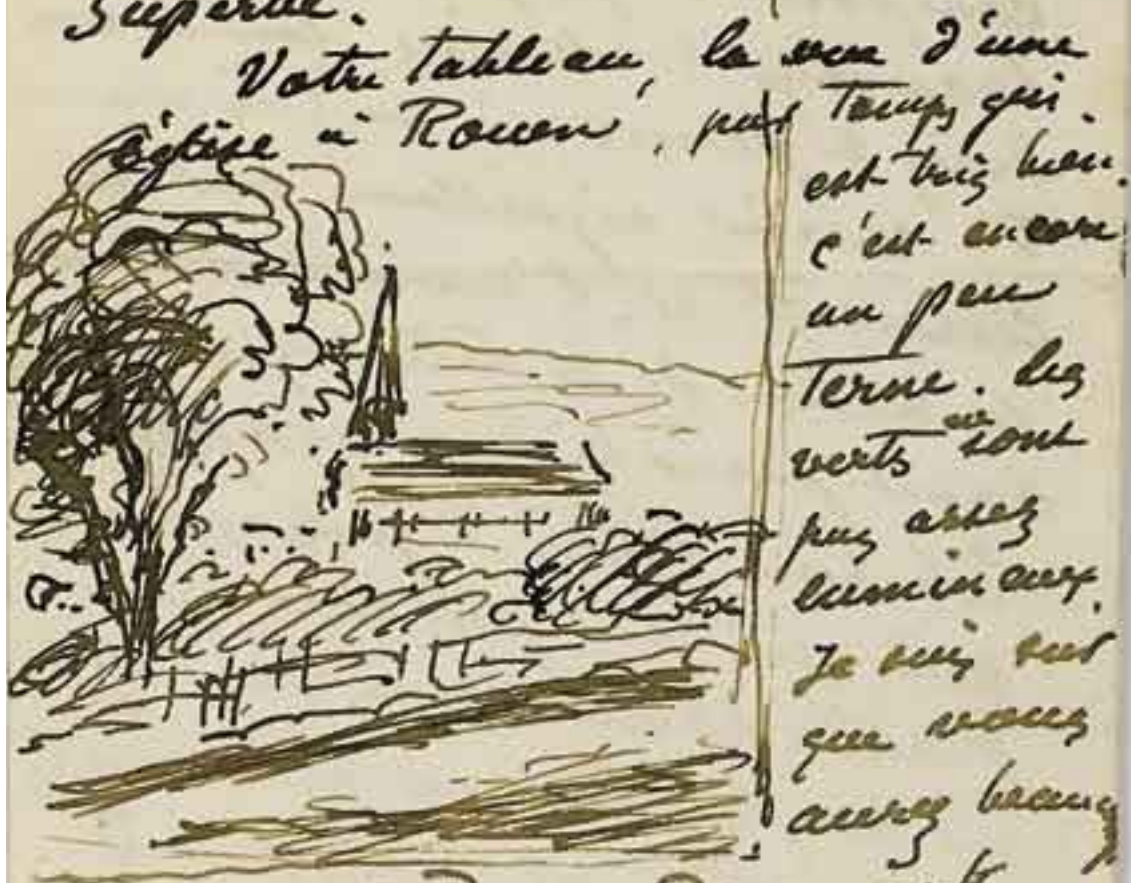 Superbe.
Votre tableau, la vue d'une
église à Rouen, par Temps gris
est très bien.
c'est encore
un peu
Terne. les
verts ne sont
pas assez
lumineux.
Je suis sur
que vous
aurez